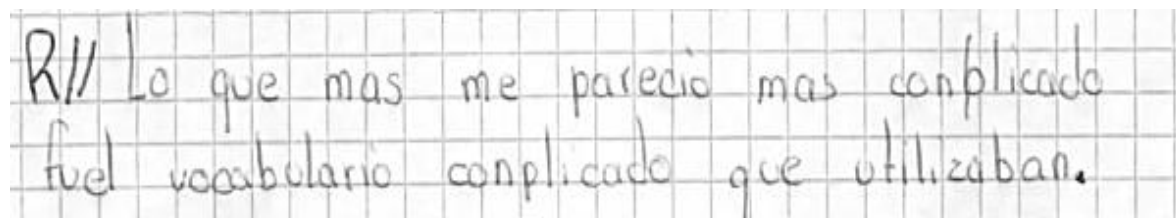 R// Lo que mas me parecio mas conplicado
fuel vocabulario conplicado que utilizaban.